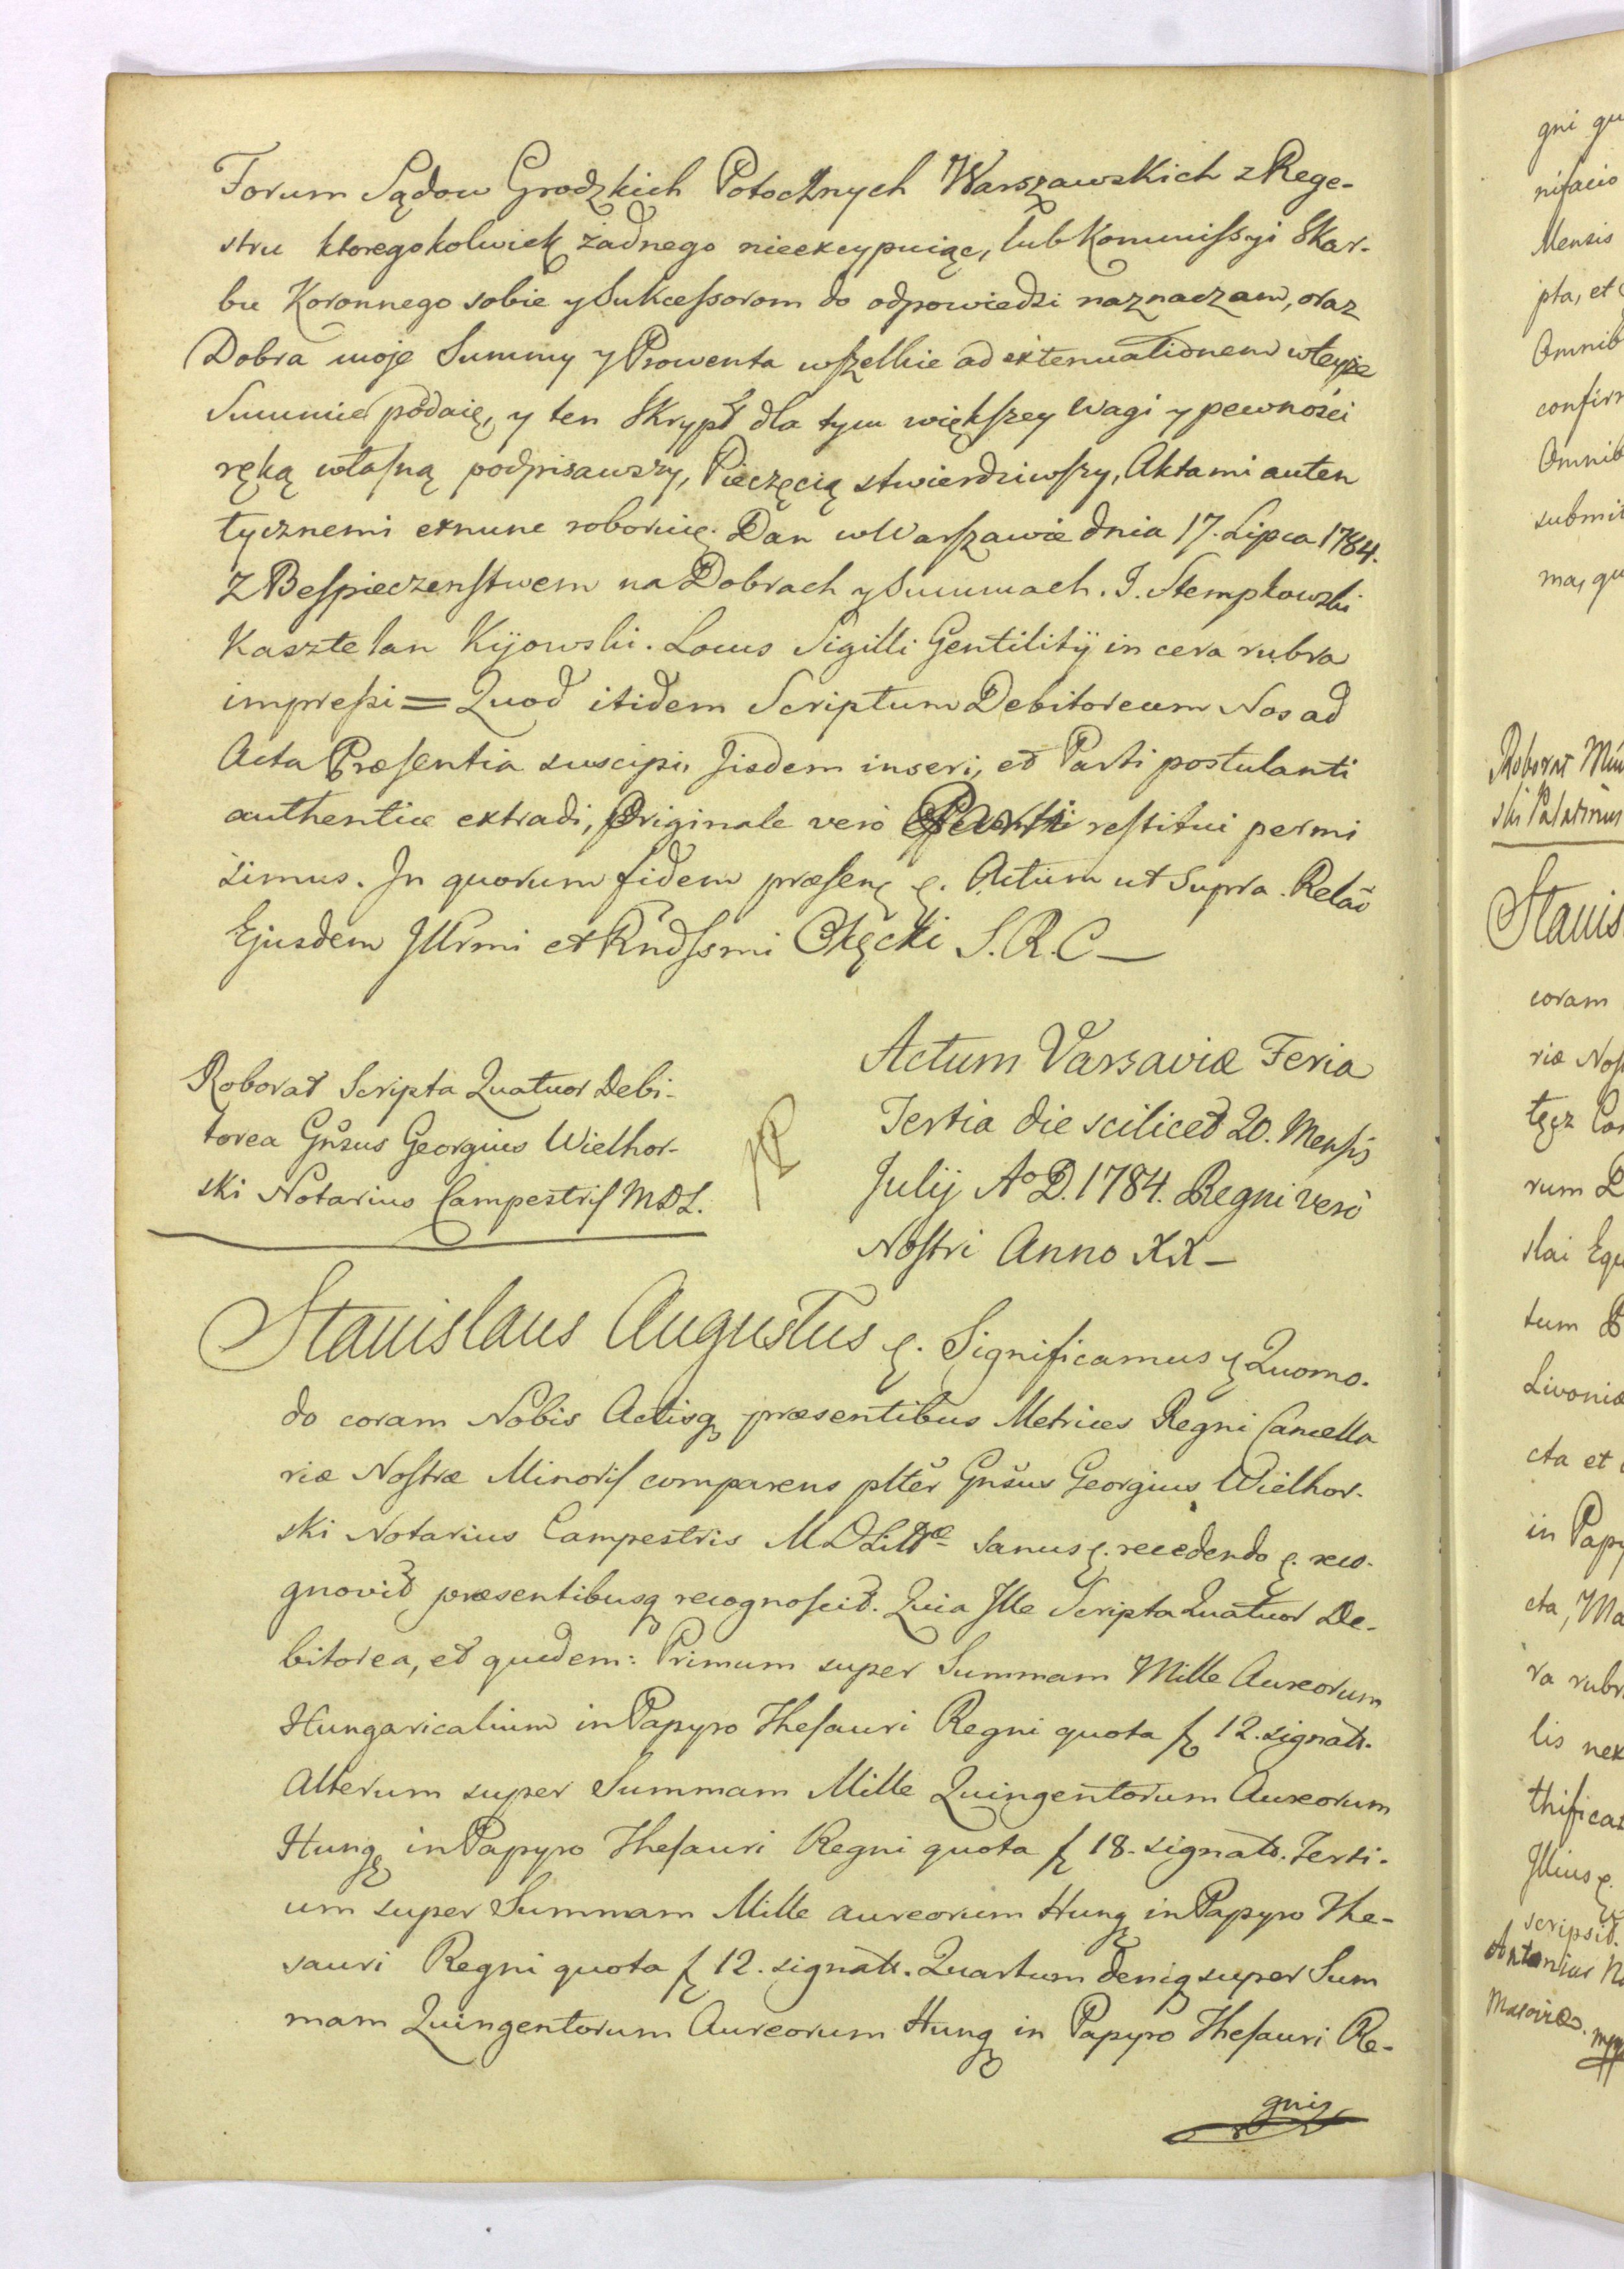 Forum Sądow Grodzkich Potocznych Warszawskich z Rege-
stru ktoregokolwiek żadnego nieexcypuiąc, lub Kommissyi Skar-
bu Koronnego sobie y Sukcessorom do odpowiedzi naznaczam, oraz
Dobra moje Summy y Prowenta wszelkie ad extenuationem w teyże
Summie podaię, y ten Skrypt dla tym większey Wagi y pewności
ręką własną podpisawszy, Pieczęcią stwierdziwszy, Aktami auten
tycznemi exnunc roboruię. Dan w Warszawie dnia 17. Lipca 1784.
Z Bespieczenstwem na Dobrach y Summach. J. Stempkowski
Kasztelan Kijowski. Locus Sigilli Gentilitij in cera rubra
impressi = Quod itidem Scriptum Debitoreum Nos ad
Acta Præsentia suscipi, Jisdem inseri, et Parti postulanti
authentice extradi, Originale verò restitui permi
simus. In quorum fidem præsen ę. Actum ut Supra. Relaõ
Ejusdem Jllrmi et Rndssmi Okęcki S.R.C —
Roborat Scripta Quatuor Debi-
torea Gnsus Georgius Wielhor-
ski Notarius Campestris MDL.
Actum Varsaviæ Feria
Tertia die scilicet 20. Mensis
Julij Aº D. 1784. Regni verò
Nostri Anno XX —
Stanislaus Augustus ę. Significamus ę Quomo-
do coram Nobis Actisq præsentibus Metrices Regni Cancella
riæ Nostræ Minoris comparens plter Gnsus Georgius Wielhor-
ski Notarius Campestris MDLittæ Sanus ę. recedendo ę. reco-
gnovit præsentibusq recognoscit. Quia Jlle Scripta Quatuor De-
bitorea, et quidem: Primum super Summam Mille Aureorum
Hungaricalium in Papyro Thesauri Regni quota f 12. signatt.
Alterum super Summam Mille Quingentorum Aureorum
Hung in Papyro Thesauri Regni quota f 18. signatt. Terti-
um super Summam Mille aureorum Hung in Papyro The-
sauri Regni quota f 12. signatt. Quartum deniq super Sum
mam Quingentorum Aureorum Hung in Papyro Thesauri Re-
gni
gni
Mensis
pta, et
Omnib
Omnib
ma, qu
Roborat
Stanis
coram
riæ Nos
rum
tum
Livoniæ
cta et
in Papy
cta, Ma
ra rubr
lis nex
thificat
Jllius ę.
scripsit.
Antonius
Masoviæ. mpp